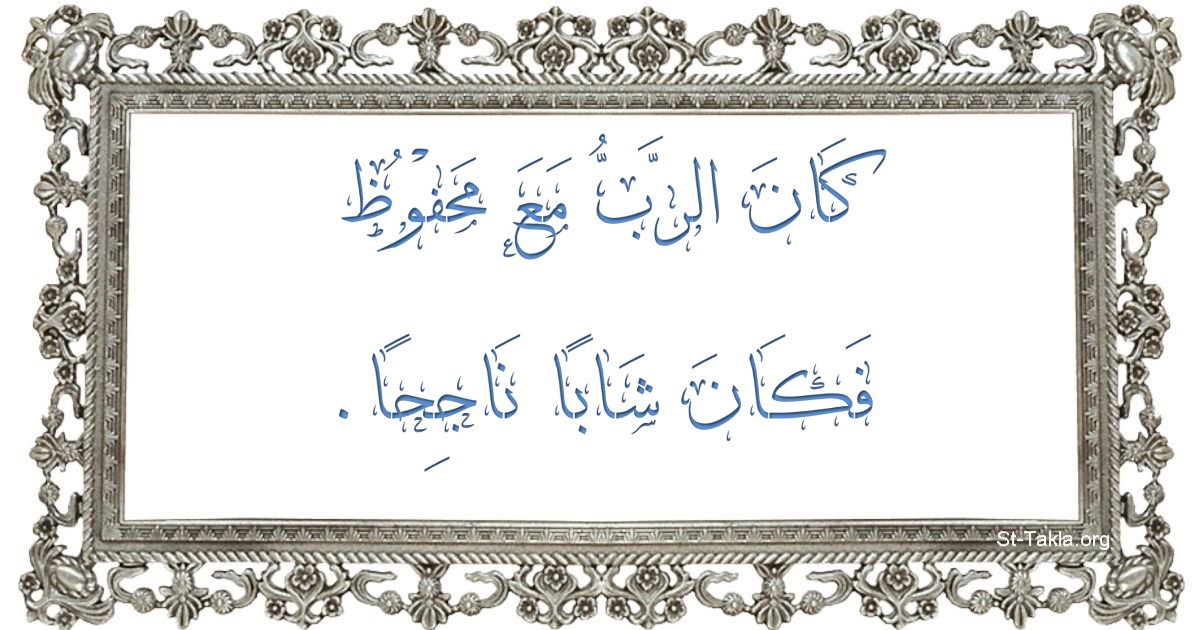 كَانَ الرَّبُّ مَعَ مَحَفُوْظٍ
فَكَانَ شَابًا نَاجِحًا .
St-Takla.org